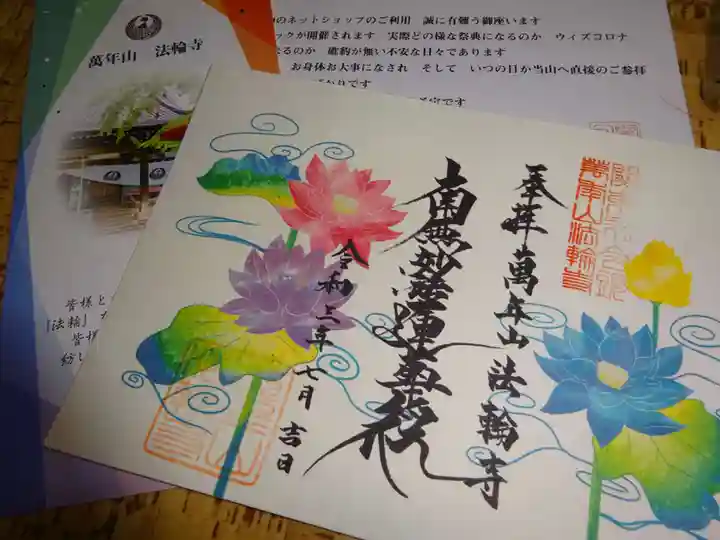 萬年山 法輪寺
のネットショップのご利用 誠に有難う御座います
ックが開催されます 実際どの様な祭典になるのか ウィズコロナ
なるのか 確約が無い不安な日々であります
お身体お大事になされ そして いつの日か当山へ直接のご参拝
皆様と
『法輪』
皆様
奉拝 萬年山 法輪寺
南無妙法蓮華経
令和三年七月吉日